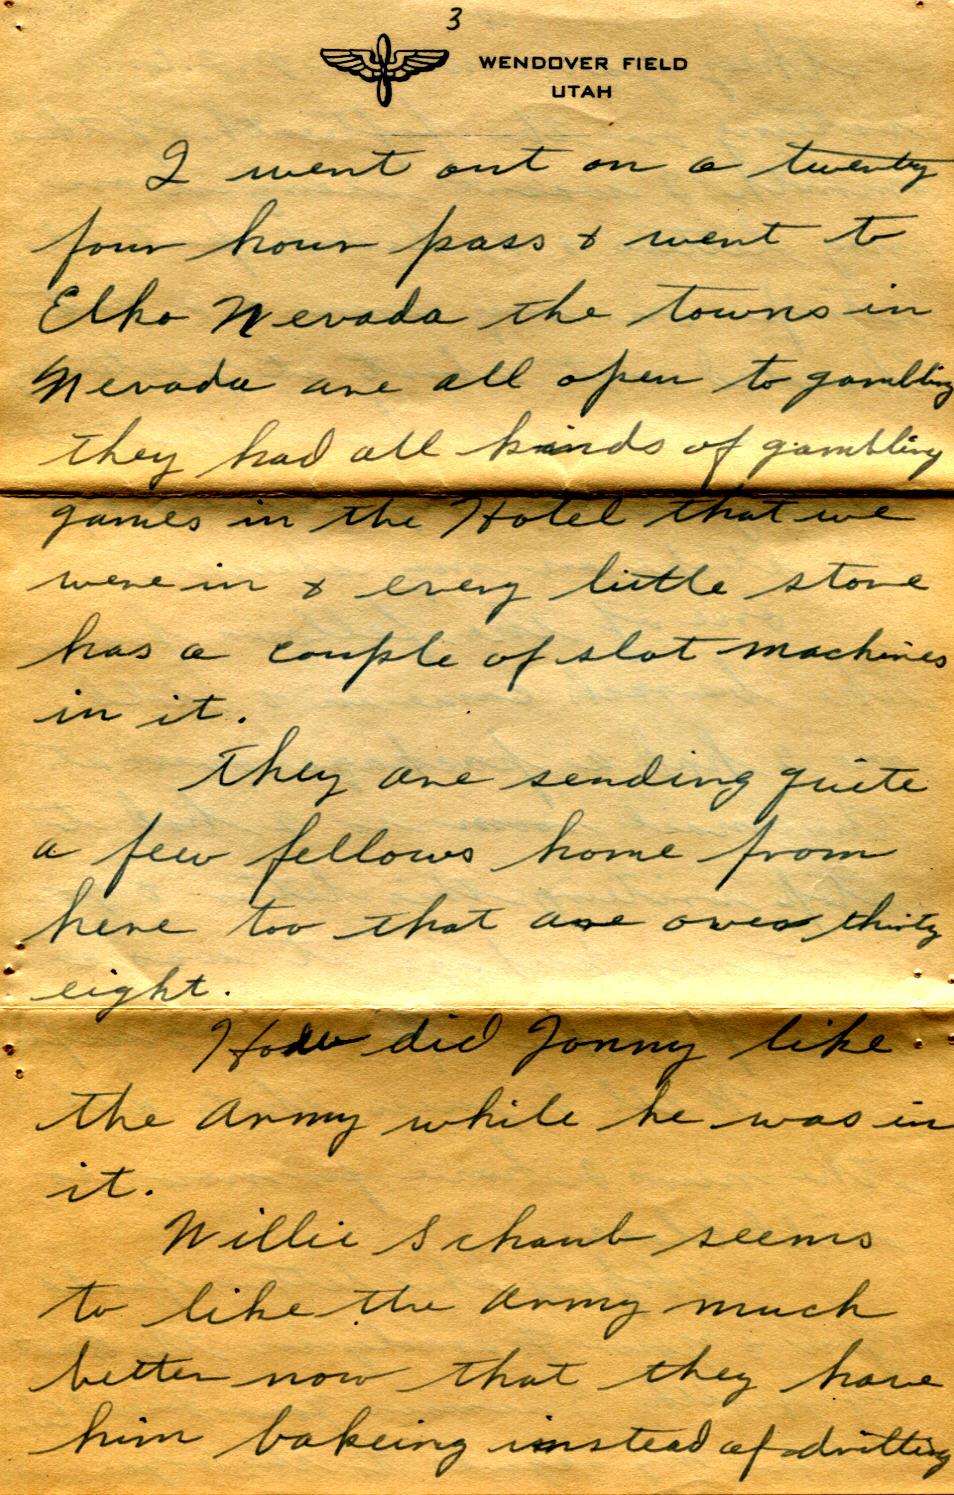 3
WENDOVER FIELD
UTAH
I went out on a twenty
four hour pass & went to
Elko Nevada the towns in
Nevada are all open to gambling
they had all kinds of gambling
games in the Hotel that we
were in & every little store
has a couple of slot machines
in it.
They are sending quite
a few fellows home from
here too that are over thirty
eight.
How did Jonny like
the Army while he was in
it.
Willie Schaub seems
to like the Army much
better now that they have
him bakeing instead of drilling